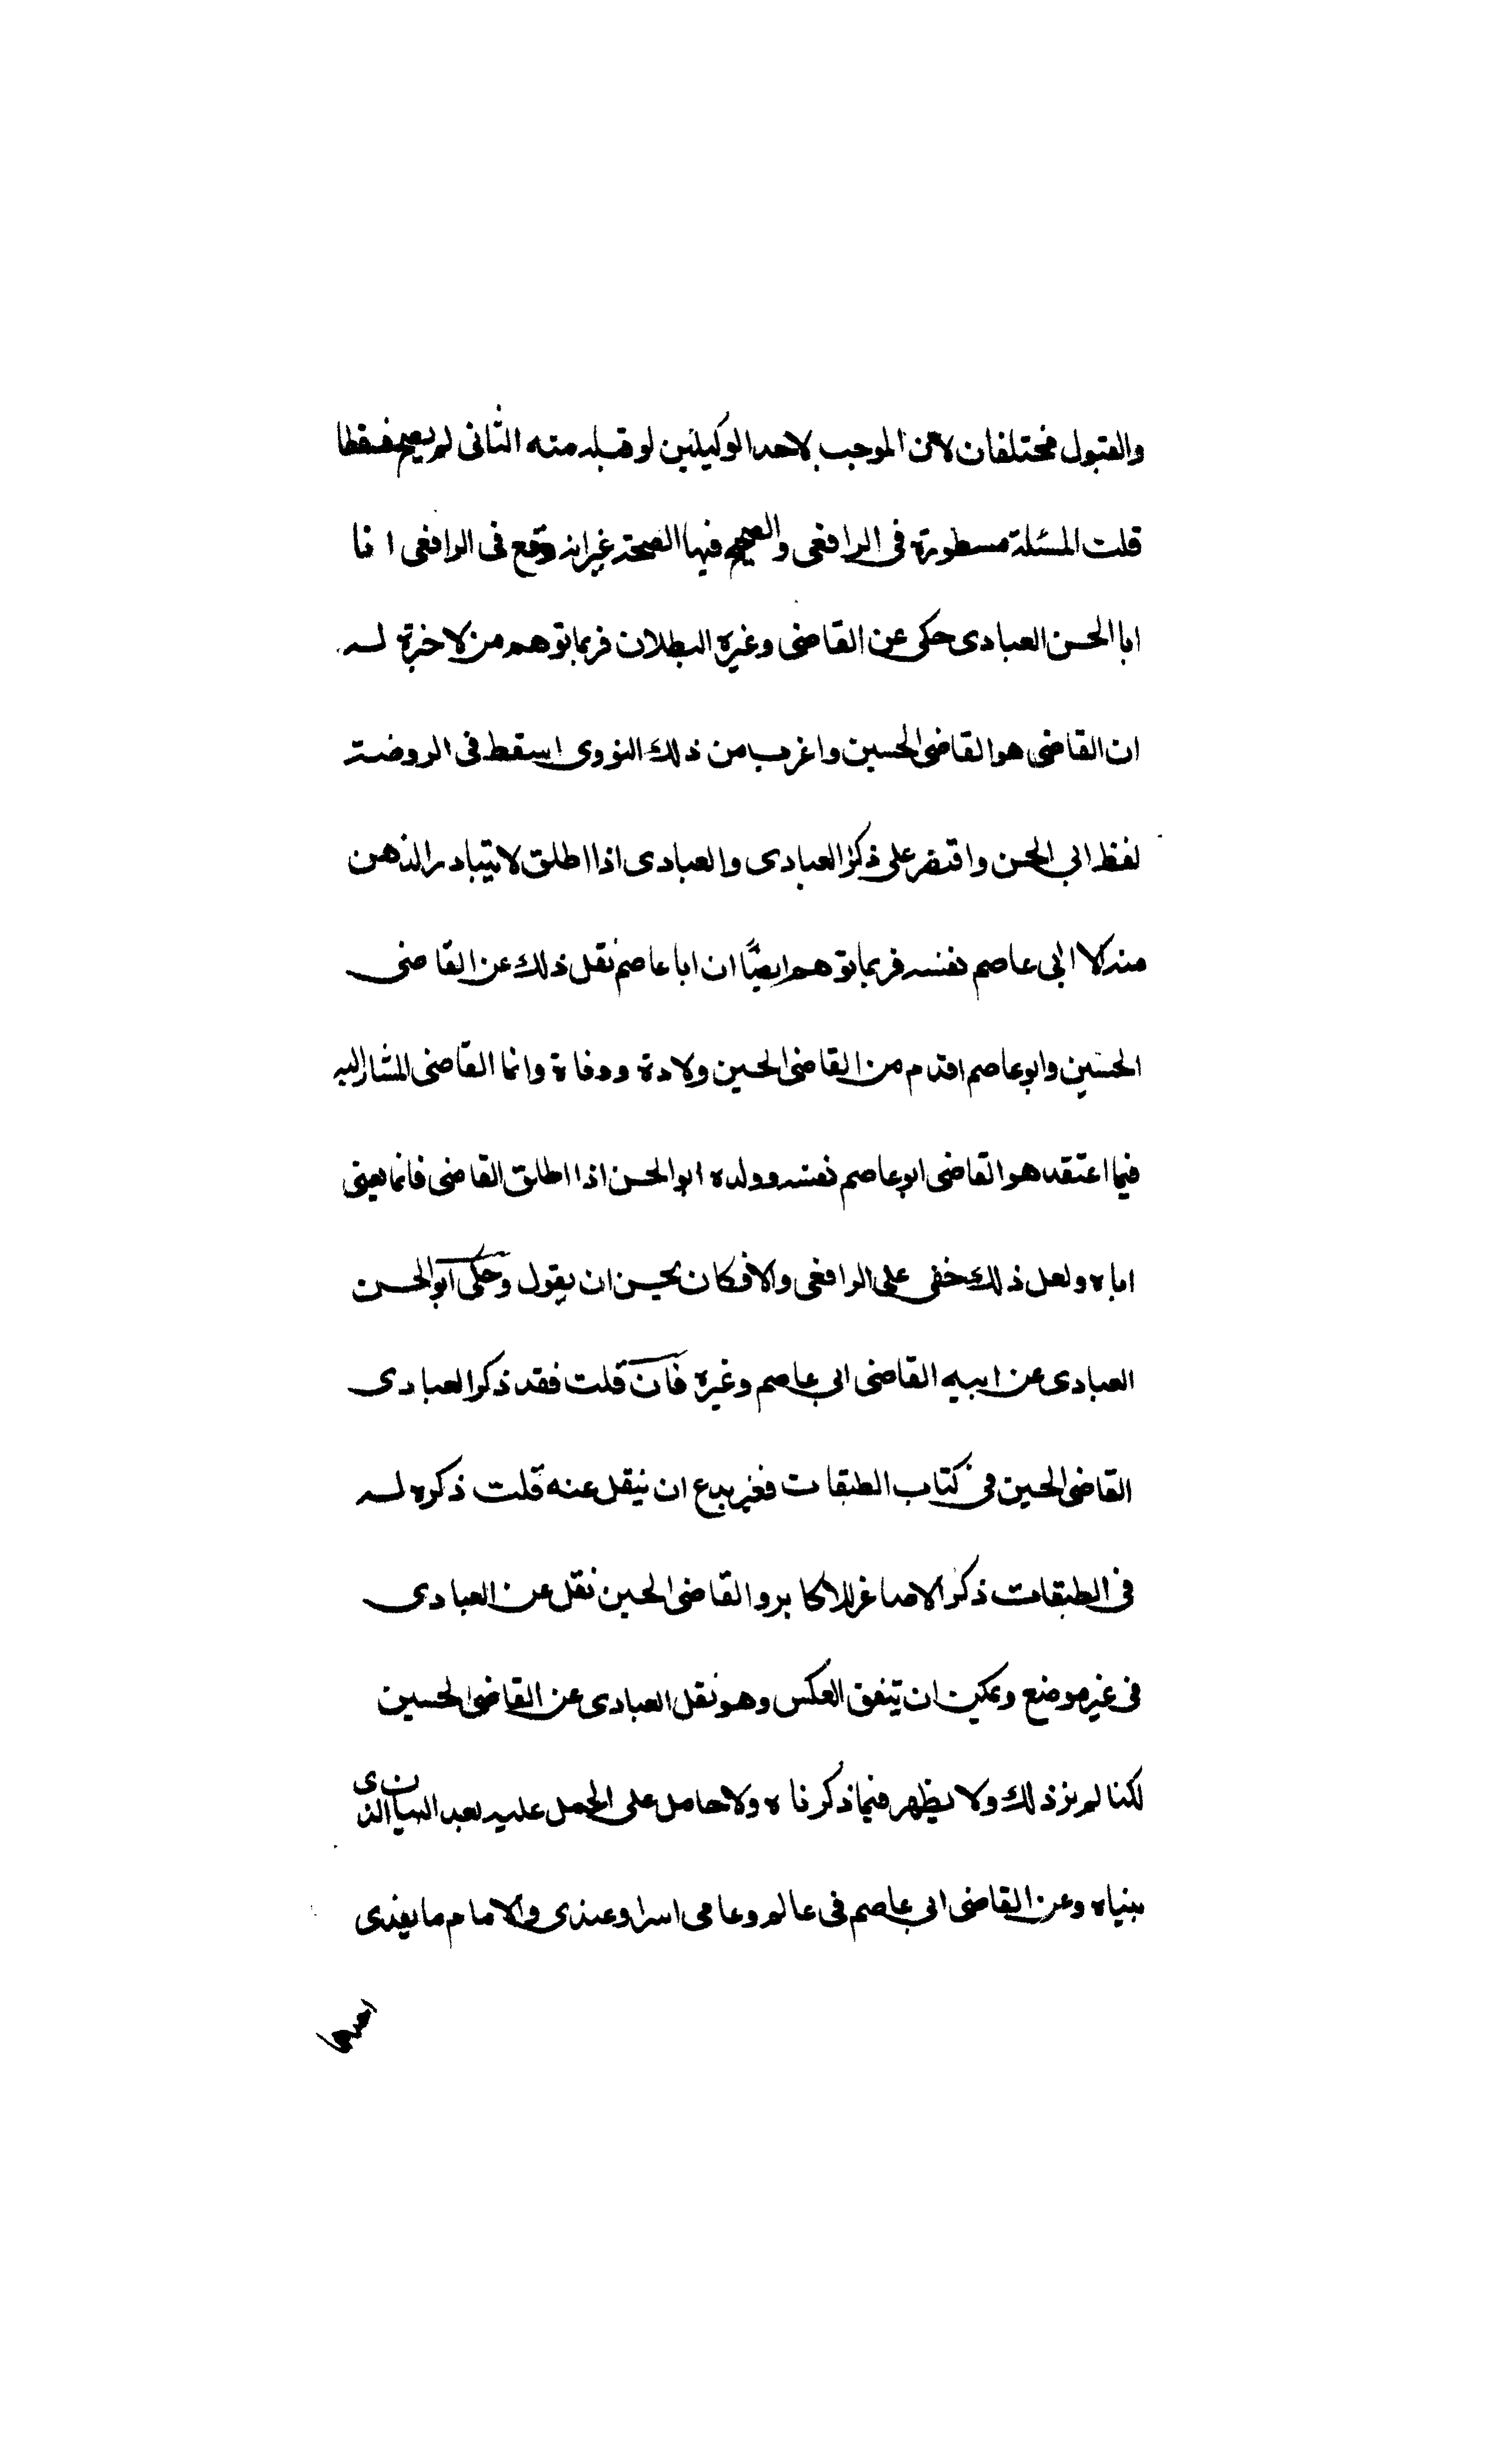 والقبول مختلفان لان الموجب لاحد الوكيلين لو قبله منه الثانى لم يصح فسقطا
قلت المسئلة مسطورة فى الرافعى والصحيح فيها الصحة غير انه وقع فى الرافعى انا
ابا الحسن العبادى حكى عن القاضى وغيره البطلان فربما توهم من لا خبرة له
ان القاضى هو القاضى الحسين واغرب من ذلك النووى اسقط فى الروضة
لفظ ابى الحسن واقتصر على ذكر العبادى والعبادى اذا اطلق لا يتبادر الذهن
منه الا الى ابى عاصم نفسه فربما توهم ايضًا ان ابا عاصم نقل ذلك عن القاضى
الحسين وابو عاصم اقدم من القاضى الحسين ولادة ووفاة وانما القاضى المشار اليه
فيما اعتقد هو القاضى ابو عاصم نفسه وولده ابو الحسن اذا اطلق القاضى فانما يعنى
اباه ولعل ذلك خفى على الرافعى والا فكان يحسن ان يقول وحكى ابو الحسن
العبادى عن ابيه القاضى ابى عاصم وغيره فان قلت فقد ذكر العبادى
القاضى الحسين فى كتاب الطبقات فغير بدع ان ينقل عنه قلت ذكره له
فى الطبقات ذكر الاصاغر للاكابر والقاضى الحسين نقل عن العبادى
فى غير موضع ويمكن ان يتفق العكس وهو نقل العبادى عن القاضى الحسين
لكنا لم نر ذلك ولا يظهر فيما ذكرناه ولا حامل على الحمل عليه بعد البيان الذى
بيناه وعن القاضى ابى عاصم فى عالم وعامى اسرا وعند والامام ما يفدى